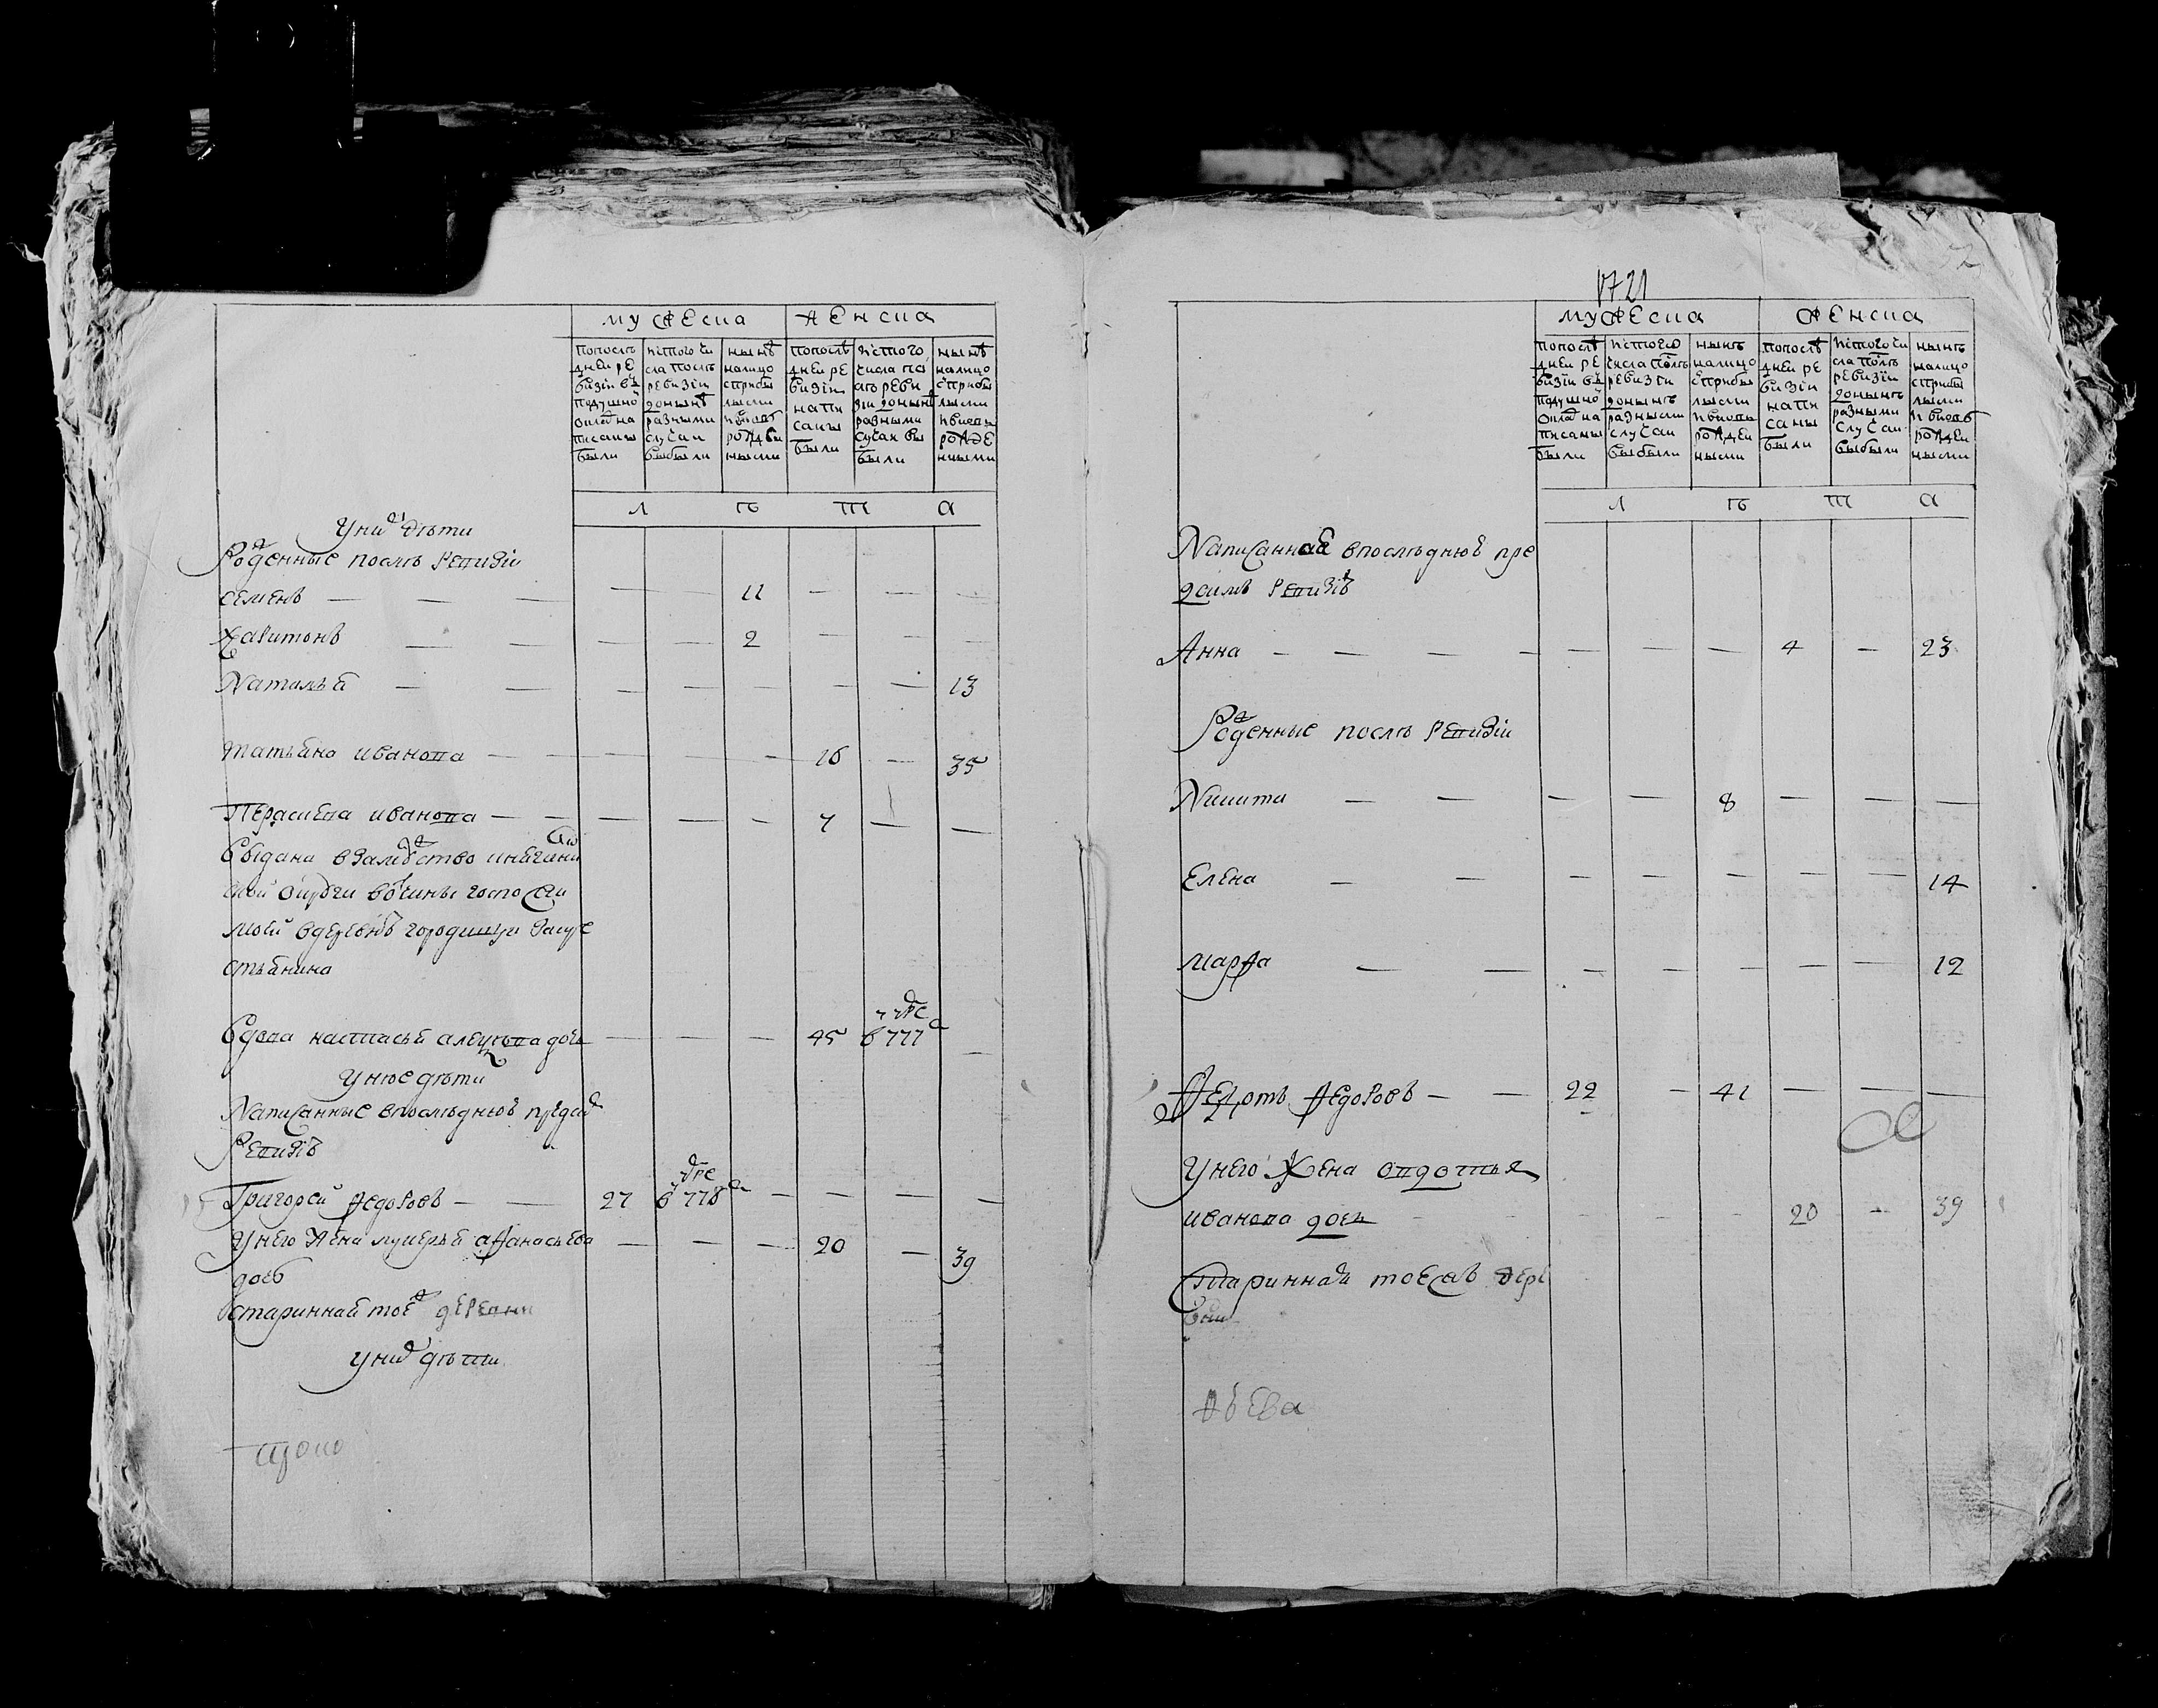 мужеска
женска
попослѣ
дней ре
визіи въ
подушно
окладъ на
писаны
были
істого чи
сла послѣ
ревизіи
донынѣ
разными
случаи
выбыли
нынѣ
налицо
сприбы
лыми
рожден
ными
попослѣ
дней ре
визіи
напи
саны
были
істого
числа по
слѣ реви
зіи донынѣ
разными
случаи вы
были
нынѣ
налицо
сприбы
лыми
рожде
нными
л ѣ т а
Уних дѣти
Рожденные послѣ ревизіи
семенъ — — — — — 11 — — —
Харитонъ — — — — 2 — — —
Наталья — — — — — — — 13
татьяна иванова — — — — — 16 — 35
Парасковья иванова — — — — — 7 — —
выдана взамужство
вотчины
вдеревнѣ городищи закре
стьянина
вдова настасья дочь — — — 45 в777 —
унюе дѣти
Написанные впослѣднюю пред сим
Ревизіѣ
Григорей федоровъ — — 27 в778 — — — —
унего жена лукерья афанасьева — — — 20 — 39
дочь
старинная тое ж деревни
уних дѣти
1721
мужеска
женска
попослѣ
дней ре
визіи въ
подушно
оклад на
писаны
были
істого
числа послѣ
ревизіи
донынѣ
разными
случаи
выбыли
нынѣ
налицо
сприбы
лыми
рожден
ными
попослѣ
дней ре
визіи
напи
саны
были
істого чи
сла послѣ
ревизіи
донынѣ
разными
случаи
выбыли
нынѣ
налицо
сприбы
лыми
рожден
ными
л ѣ т а
Написанная впослѣднюю пре
дсимъ ревизіѣ
Анна — — — — — — — 4 — 23
Рожденные послѣ ревизіи
Никита — — — — 8 — — —
Елена — — — — — — — 14
марфа — — — — — — — 12
Федотъ федоровъ — — 22 — 41 — — —
унего жена овдотья
иванова дочь — — — — 20 — 39
старинная тоежъ дере
вни